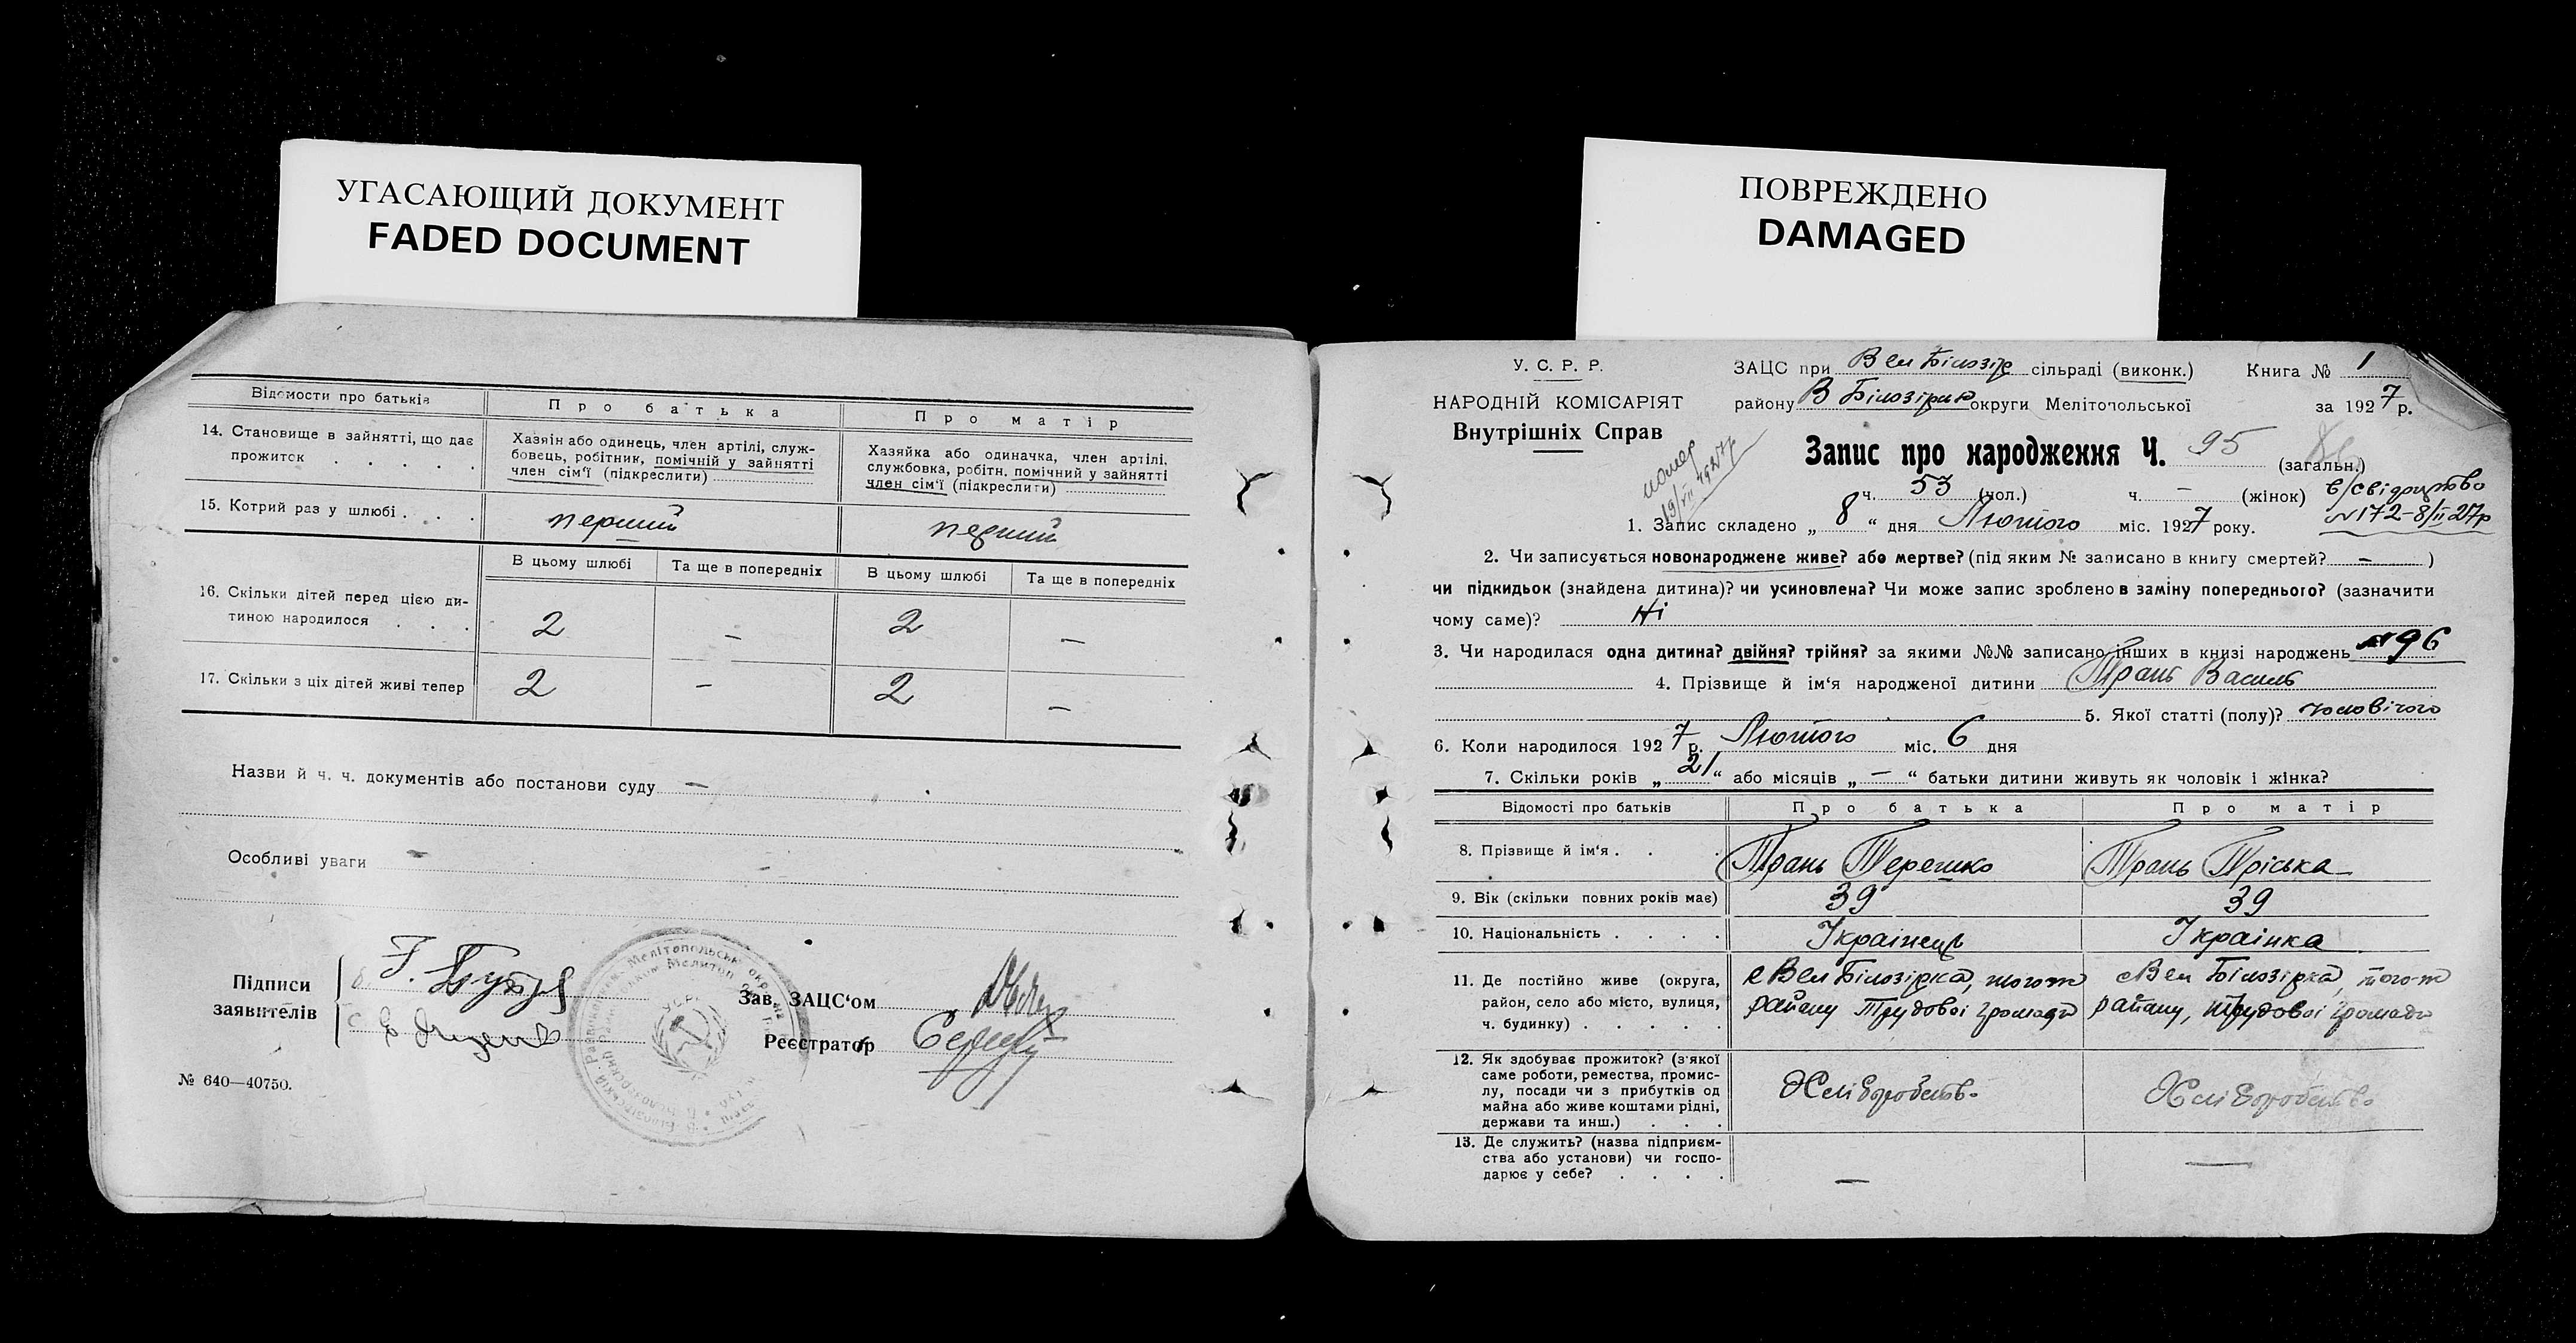 УГАСАЮЩИЙ ДОКУМЕНТ
FADED DOCUMENT
Відомости про батьків
Про батька
Про матір
14. Становище в зайнятті, що дає
прожиток . . . . .
Хазяін або одинець, член артілі, служ-
бовець, робітник, помічній у зайнятті
член сім'ї (підкреслити)
Хазяйка або одиначка, член артілі,
службовка, робітн. помічний у зайнятті
член сім'ї (підкреслити)
15. Котрий раз у шлюбі . . .
перший
перший
В цьому шлюбі
Та ще в попередніх
В цьому шлюбі
Та ще в попередніх
16. Скільки дітей перед цією ди-
тиною народилося . . .
2 – 2 –
17. Скільки з ціх дітей живі тепер
2 – 2 –
Назви й ч. ч. документів або постанови суду –
Особливі уваги –
Підписи
заявителів
Зав. ЗАЦС'ом
Реєстратор
№ 640—40750.
ПОВРЕЖДЕНО
DAMAGED
У. С. Р. Р.
НАРОДНІЙ КОМІСАРІЯТ
Внутрішніх Справ
номер
ЗАЦС при Вел Білозір сільраді (виконк.) Книга № 1
району В Білозірик округи Мелітопольської за 1927 р.
Запис про народження Ч. 95 (загальн.)
ч. 53 (чол.) ч. – (жінок)
в/свідоцтво
№172-8/II 27р
1. Запис складено „ 8 “ дня Лютого міс. 1927 року.
2. Чи записується новонароджене живе? або мертве? (під яким № записано в книгу смертей? – )
чи підкидьок (знайдена дитина)? чи усиновлена? Чи може запис зроблено в заміну попереднього? (зазначити
чому саме)? Ні
3. Чи народилася одна дитина? двійня? трійня? за якими №№ записано інших в книзі народжень №96
4. Прізвище й ім'я народженої дитини Трань Василь
5. Якої статті (полу)? чоловічого
6. Коли народилося 1927 р. Лютого міс. 6 дня
7. Скільки років „ 21 “ або місяців „ – “ батьки дитини живуть як чоловік і жінка?
Відомості про батьків
Про батька
Про матір
8. Прізвище й ім'я . . .
Трань Терешко
Трань Пріська
9. Вік (скільки повних років має)
39
39
10. Національність . . . .
Україінець
Украінка
11. Де постійно живе (округа,
район, село або місто, вулиця,
ч. будинку) . . . . .
с Вел Білозірка, того-ж
району Трудової громади
с Вел Білозірка, того-ж
району, Трудової громади
12. Як здобуває прожиток? (з якої
саме роботи, ремества, промис-
лу, посади чи з прибутків од
майна або живе коштами рідні,
держави та инш.) . . .
Хліборобств.
Хліборобств.
13. Де служить? (назва підприєм-
ства або установи) чи госпо-
дарює у себе? . . . .
–
–